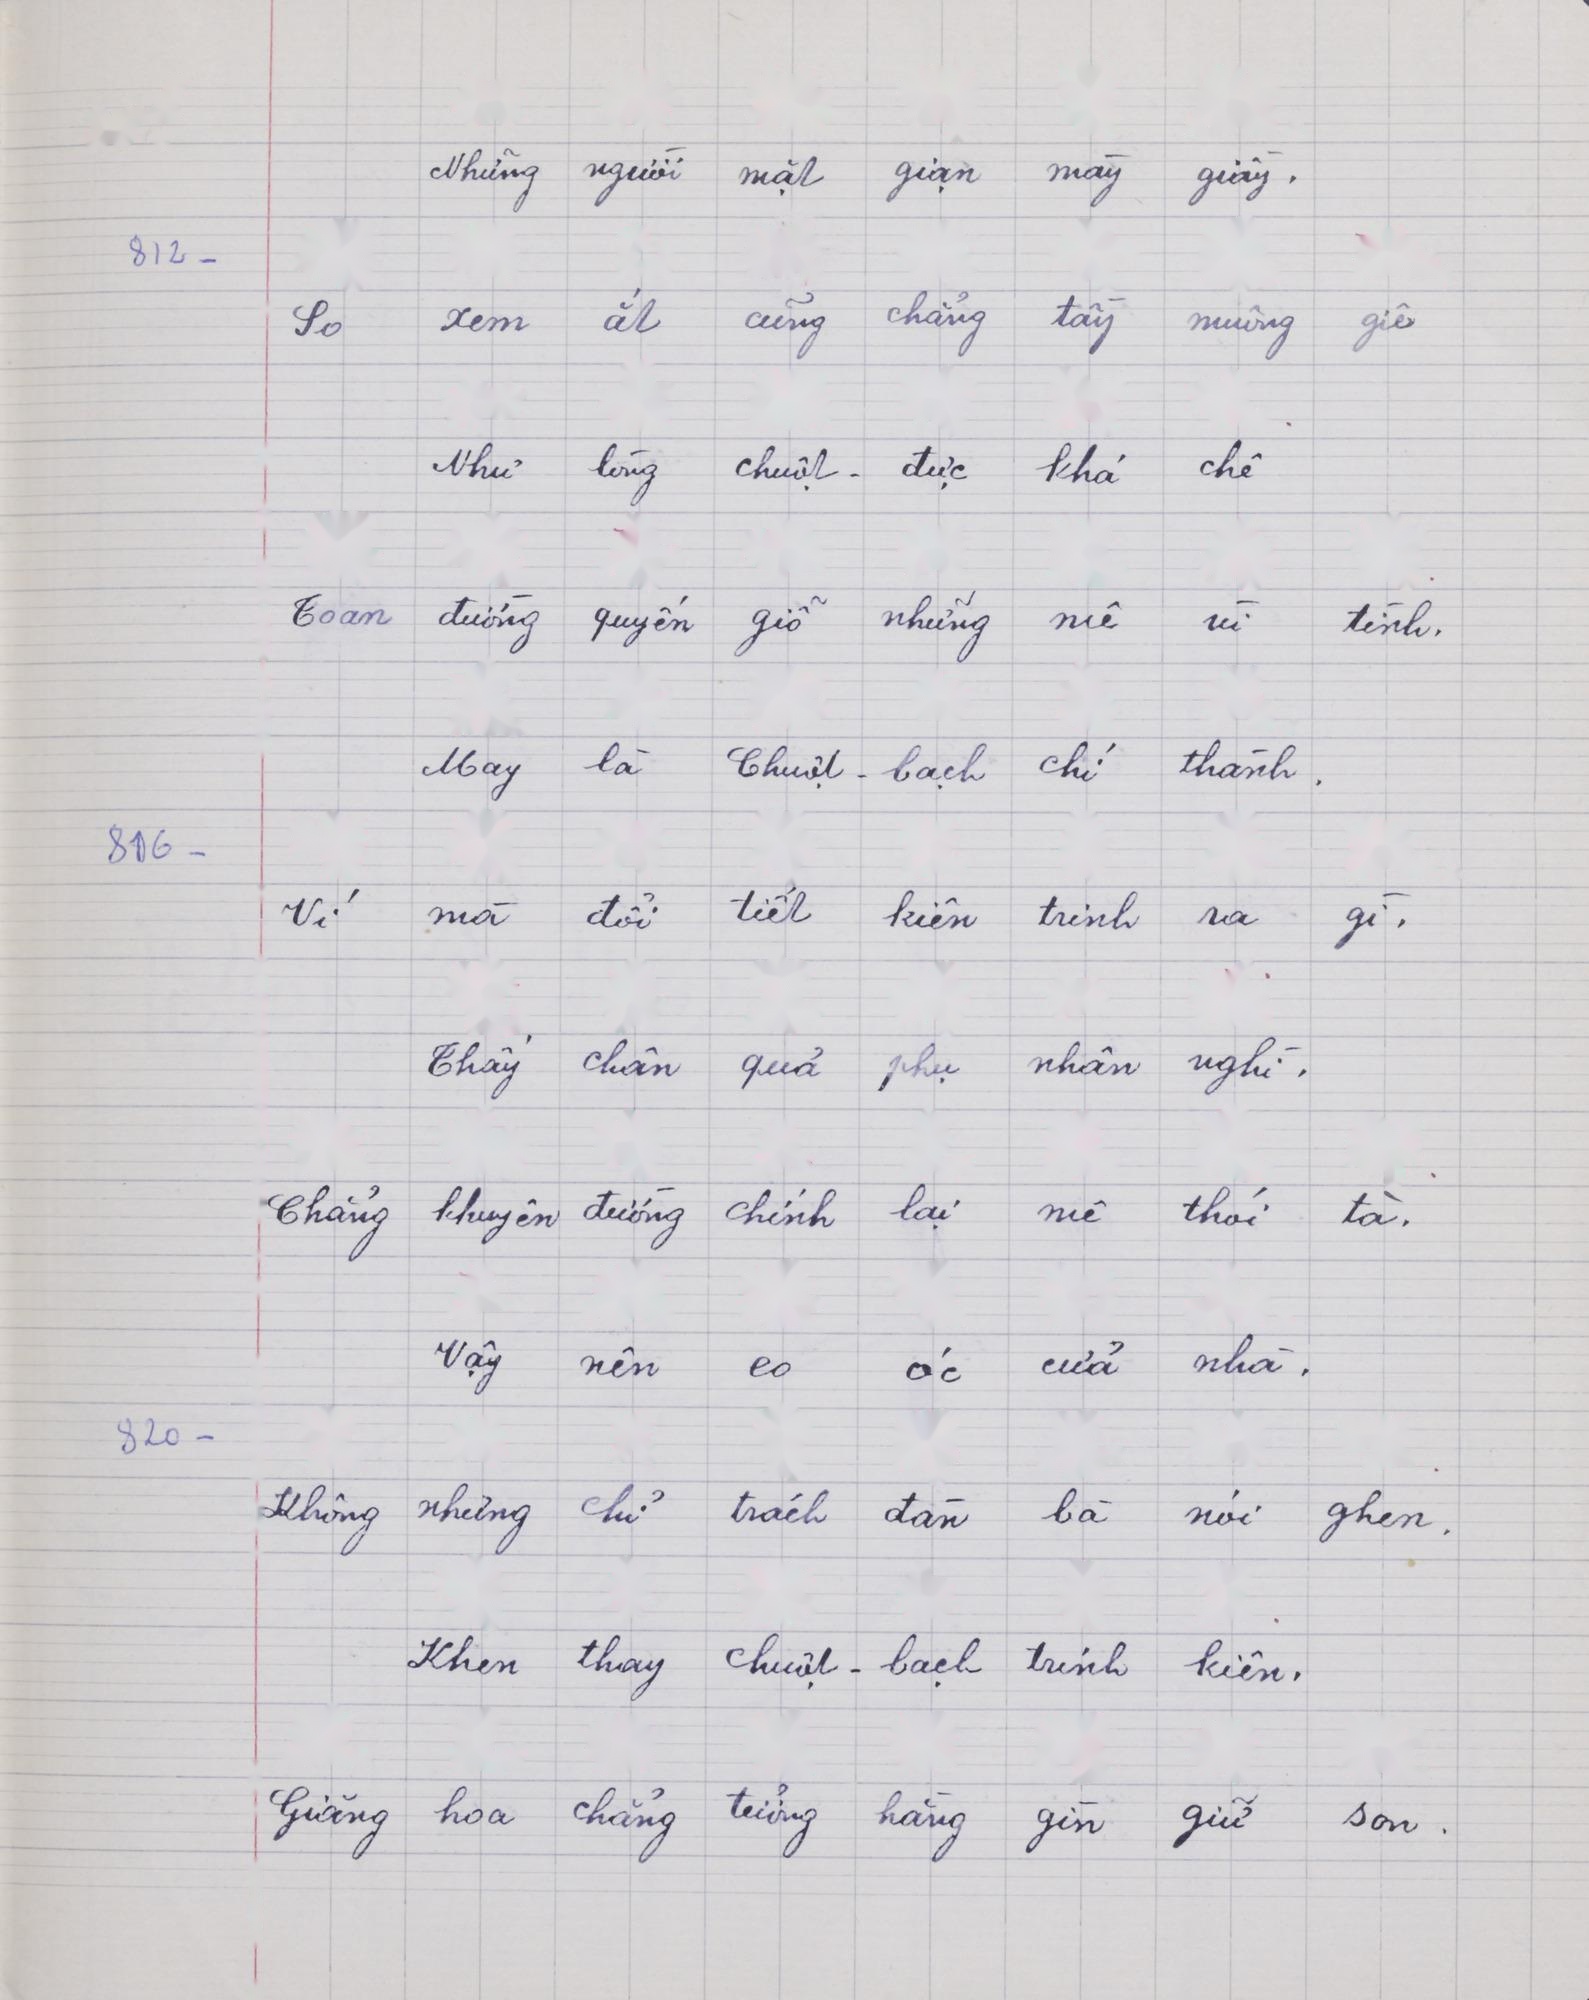 Những người mặt giạn mày giầy.
812 -
So xem ắt cũng chẳng tầy muông giê
Như lòng chuột - đực khá chê
Toan đường quyến giỗ những mê vì tình.
May là Chuột - bạch chí thành.
816 -
Ví mà đổi tiết kiên trinh ra gì.
Thấy chân quả phụ nhân nghì.
Chẳng khuyên đường chính lại mê thói tà.
Vậy nên eo óc cửa nhà.
820 -
Không những chỉ trách đàn bà nói ghen.
Khen thay chuột - bạch trinh kiên.
Giăng hoa chẳng tưởng hằng gìn giữ son.